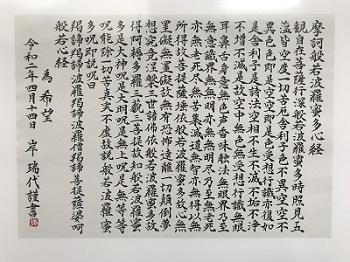 摩訶般若波羅蜜多心経
観自在菩薩行深般若波羅蜜多時照見五
蘊皆空度一切苦厄舎利子色不異空空不
異色色即是空空即是色受想行識亦復如
是舎利子是諸法空相不生不滅不垢不浄
不増不減是故空中無色無受想行識無眼
耳鼻舌身意無色声香味触法無眼界乃至
無意識界無無明亦無無明尽乃至無老死
亦無老死尽無苦集滅道無智亦無得以無
所得故菩提薩埵依般若波羅蜜多故心無
罣礙無罣礙故無有恐怖遠離一切顛倒夢
想究竟涅槃三世諸佛依般若波羅蜜多故
得阿耨多羅三藐三菩提故知般若波羅蜜
多是大神呪是大明呪是無上呪是無等等
呪能除一切苦真実不虚故説般若波羅蜜
多呪即説呪曰
羯諦羯諦波羅羯諦波羅僧羯諦菩提薩婆呵
般若心経
為希望
令和二年四月十四日 岸瑞代謹書